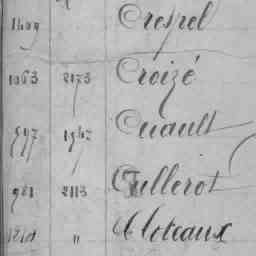 1409 Crespel
1063 2173 Croizé
597 1562 Cuault
981 2113 Cullerot
1201 " Cloteaux